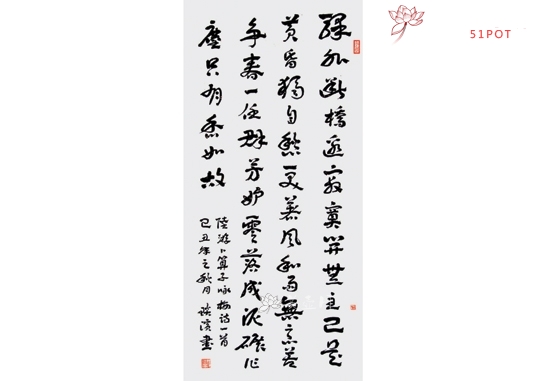 51POT
驛外斷橋邊寂寞開無主已是
黃昏獨自愁更著風和雨無意苦
爭春一任群芳妒零落成泥碾作
塵只有香如故
陸游卜算子咏梅詩一首
己丑年之秋月 書